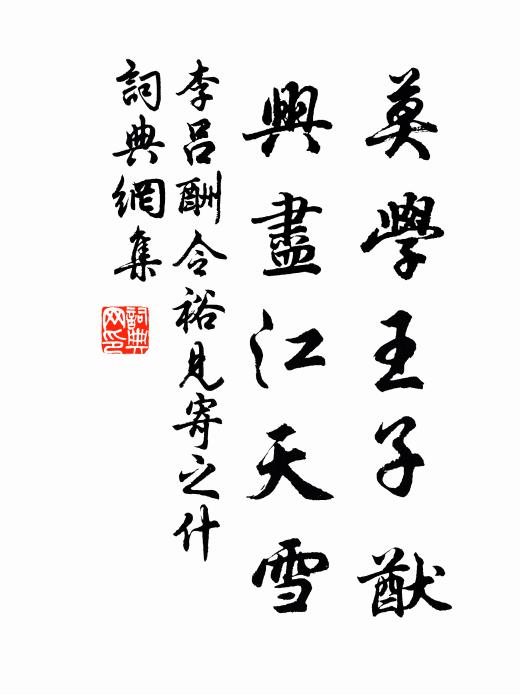 莫學王子猷
興盡江天雪
李呂酬令裕見寄之什
詞典網集
詞典
网印